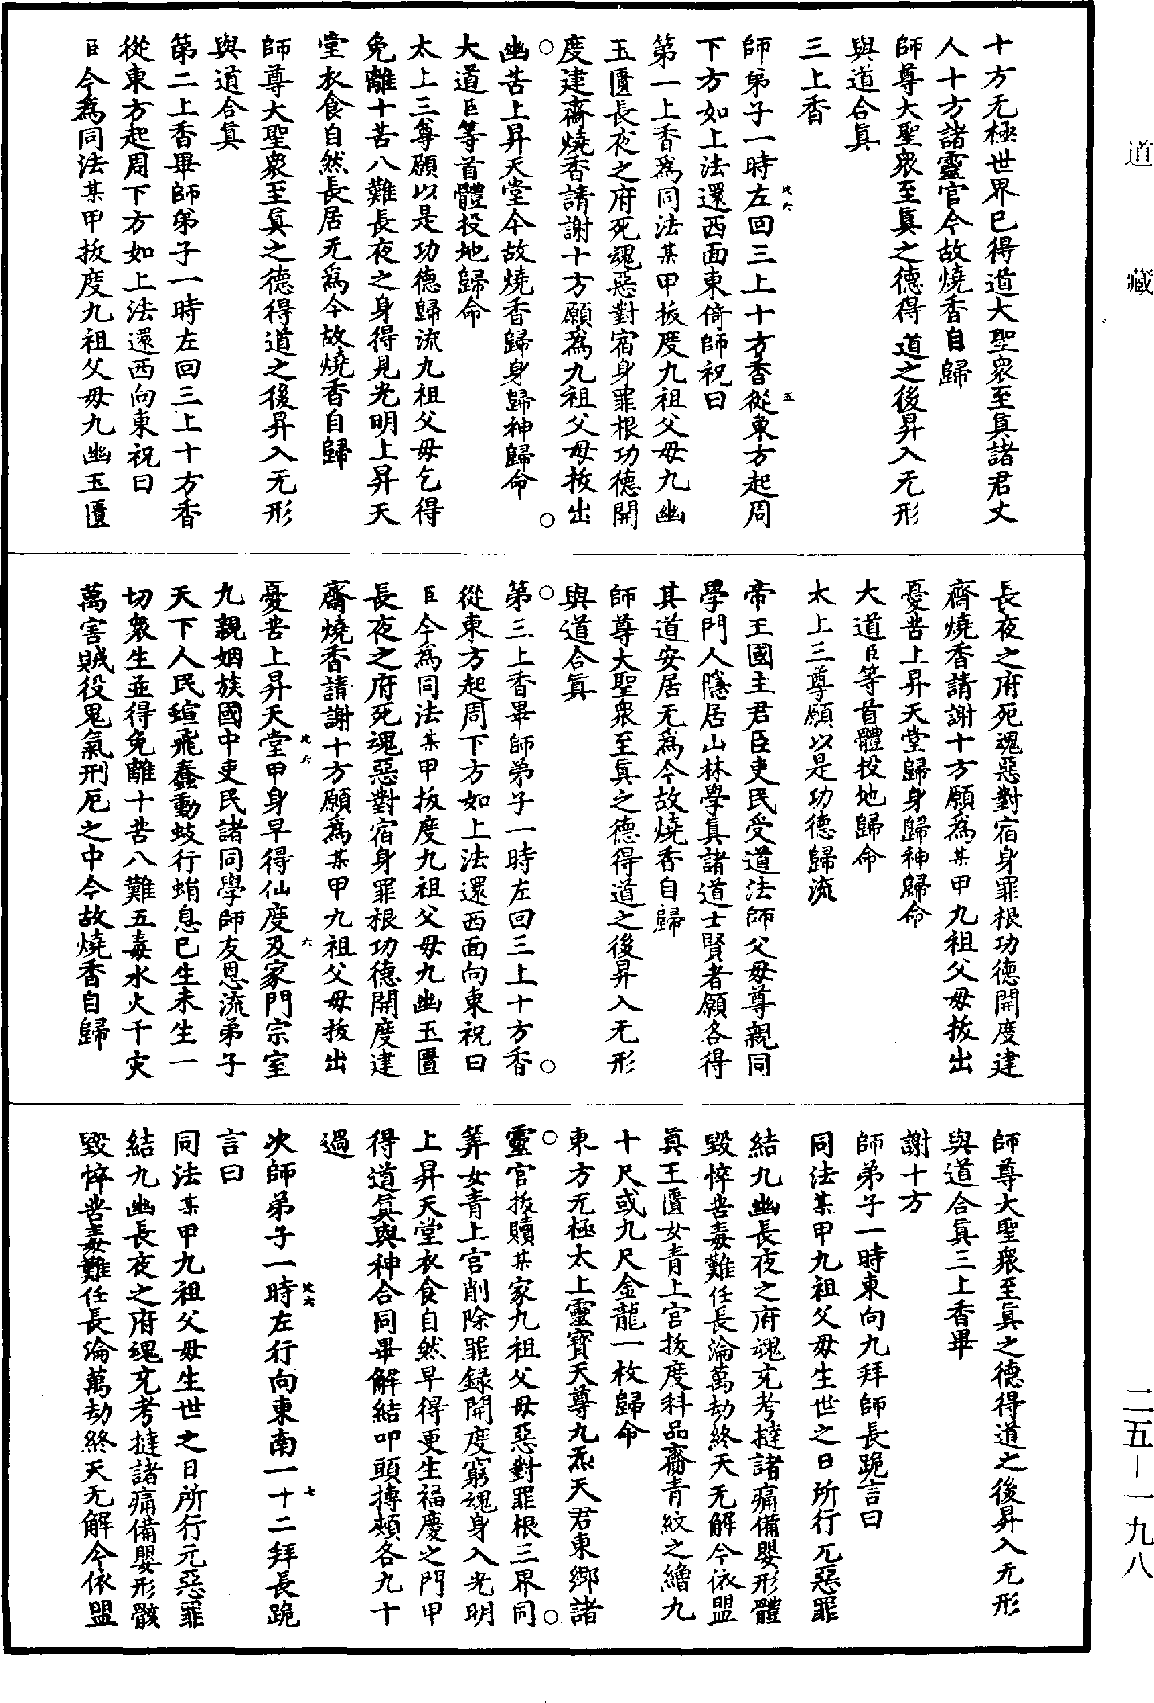 道藏
二五—一九八
十方无極世界已得道大聖衆至真諸君丈
人十方諸靈官今故燒香自歸
師尊大聖衆至真之德得道之後昇入无形
與道合真
三上香
師弟子一時左回三上十方香從東方起周
下方如上法還西面東倚師祝曰
第一上香爲同法某甲拔度九祖父母九幽
玉匱長夜之府死魂惡對宿身罪根功德開
度建齋燒香請謝十方願爲九祖父母拔出
幽苦上昇天堂今故燒香歸身歸神歸命
大道臣等首體投地歸命
太上三尊願以是功德歸流九祖父母乞得
免離十苦八難長夜之身得見光明上昇天
堂衣食自然長居无爲今故燒香自歸
師尊大聖衆至真之德得道之後昇入无形
與道合真
第二上香畢師弟子一時左回三上十方香
從東方起周下方如上法還西向東祝曰
臣今爲同法某甲拔度九祖父母九幽玉匱
長夜之府死魂惡對宿身罪根功德開度建
齋燒香請謝十方願爲某甲九祖父母拔出
憂苦上昇天堂歸身歸神歸命
大道臣等首體投地歸命
太上三尊願以是功德歸流
帝王國主君臣吏民受道法師父母尊親同
學門人隱居山林學真諸道士賢者願各得
其道安居无爲今故燒香自歸
師尊大聖衆至真之德得道之後昇入无形
與道合真
第三上香畢師弟子一時左回三上十方香
從東方起周下方如上法還西面向東祝曰
臣今爲同法某甲拔度九祖父母九幽玉匱
長夜之府死魂惡對宿身罪根功德開度建
齋燒香請謝十方願爲某甲九祖父母拔出
憂苦上昇天堂甲身早得仙度及家門宗室
九親姻族國中吏民諸同學師友恩流弟子
天下人民蝖飛蠢動蚑行蛸息已生未生一
切衆生並得免離十苦八難五毒水火千灾
萬害賊役鬼氣刑厄之中今故燒香自歸
師尊大聖衆至真之德得道之後昇入无形
與道合真三上香畢
謝十方
師弟子一時東向九拜師長跪言曰
同法某甲九祖父母生世之日所行元惡罪
結九幽長夜之府魂充考撻諸痛備嬰形體
毀悴苦毒難任長淪萬劫終天无解今依盟
真玉匱女青上宮拔度科品齎青紋之繒九
十尺或九尺金龍一枚歸命
東方无極太上靈寶天尊九炁天君東鄉諸
靈官拔贖某家九祖父母惡對罪根三界同
筭女青上宮削除罪録開度窮魂身入光明
上昇天堂衣食自然早得更生福慶之門甲
得道真與神合同畢解結叩頭摶頰各九十
過
次師弟子一時左行向東南一十二拜長跪
言曰
同法某甲九祖父母生世之日所行元惡罪
結九幽長夜之府魂充考撻諸痛備嬰形骸
毀悴苦毒難任長淪萬劫終天无解今依盟